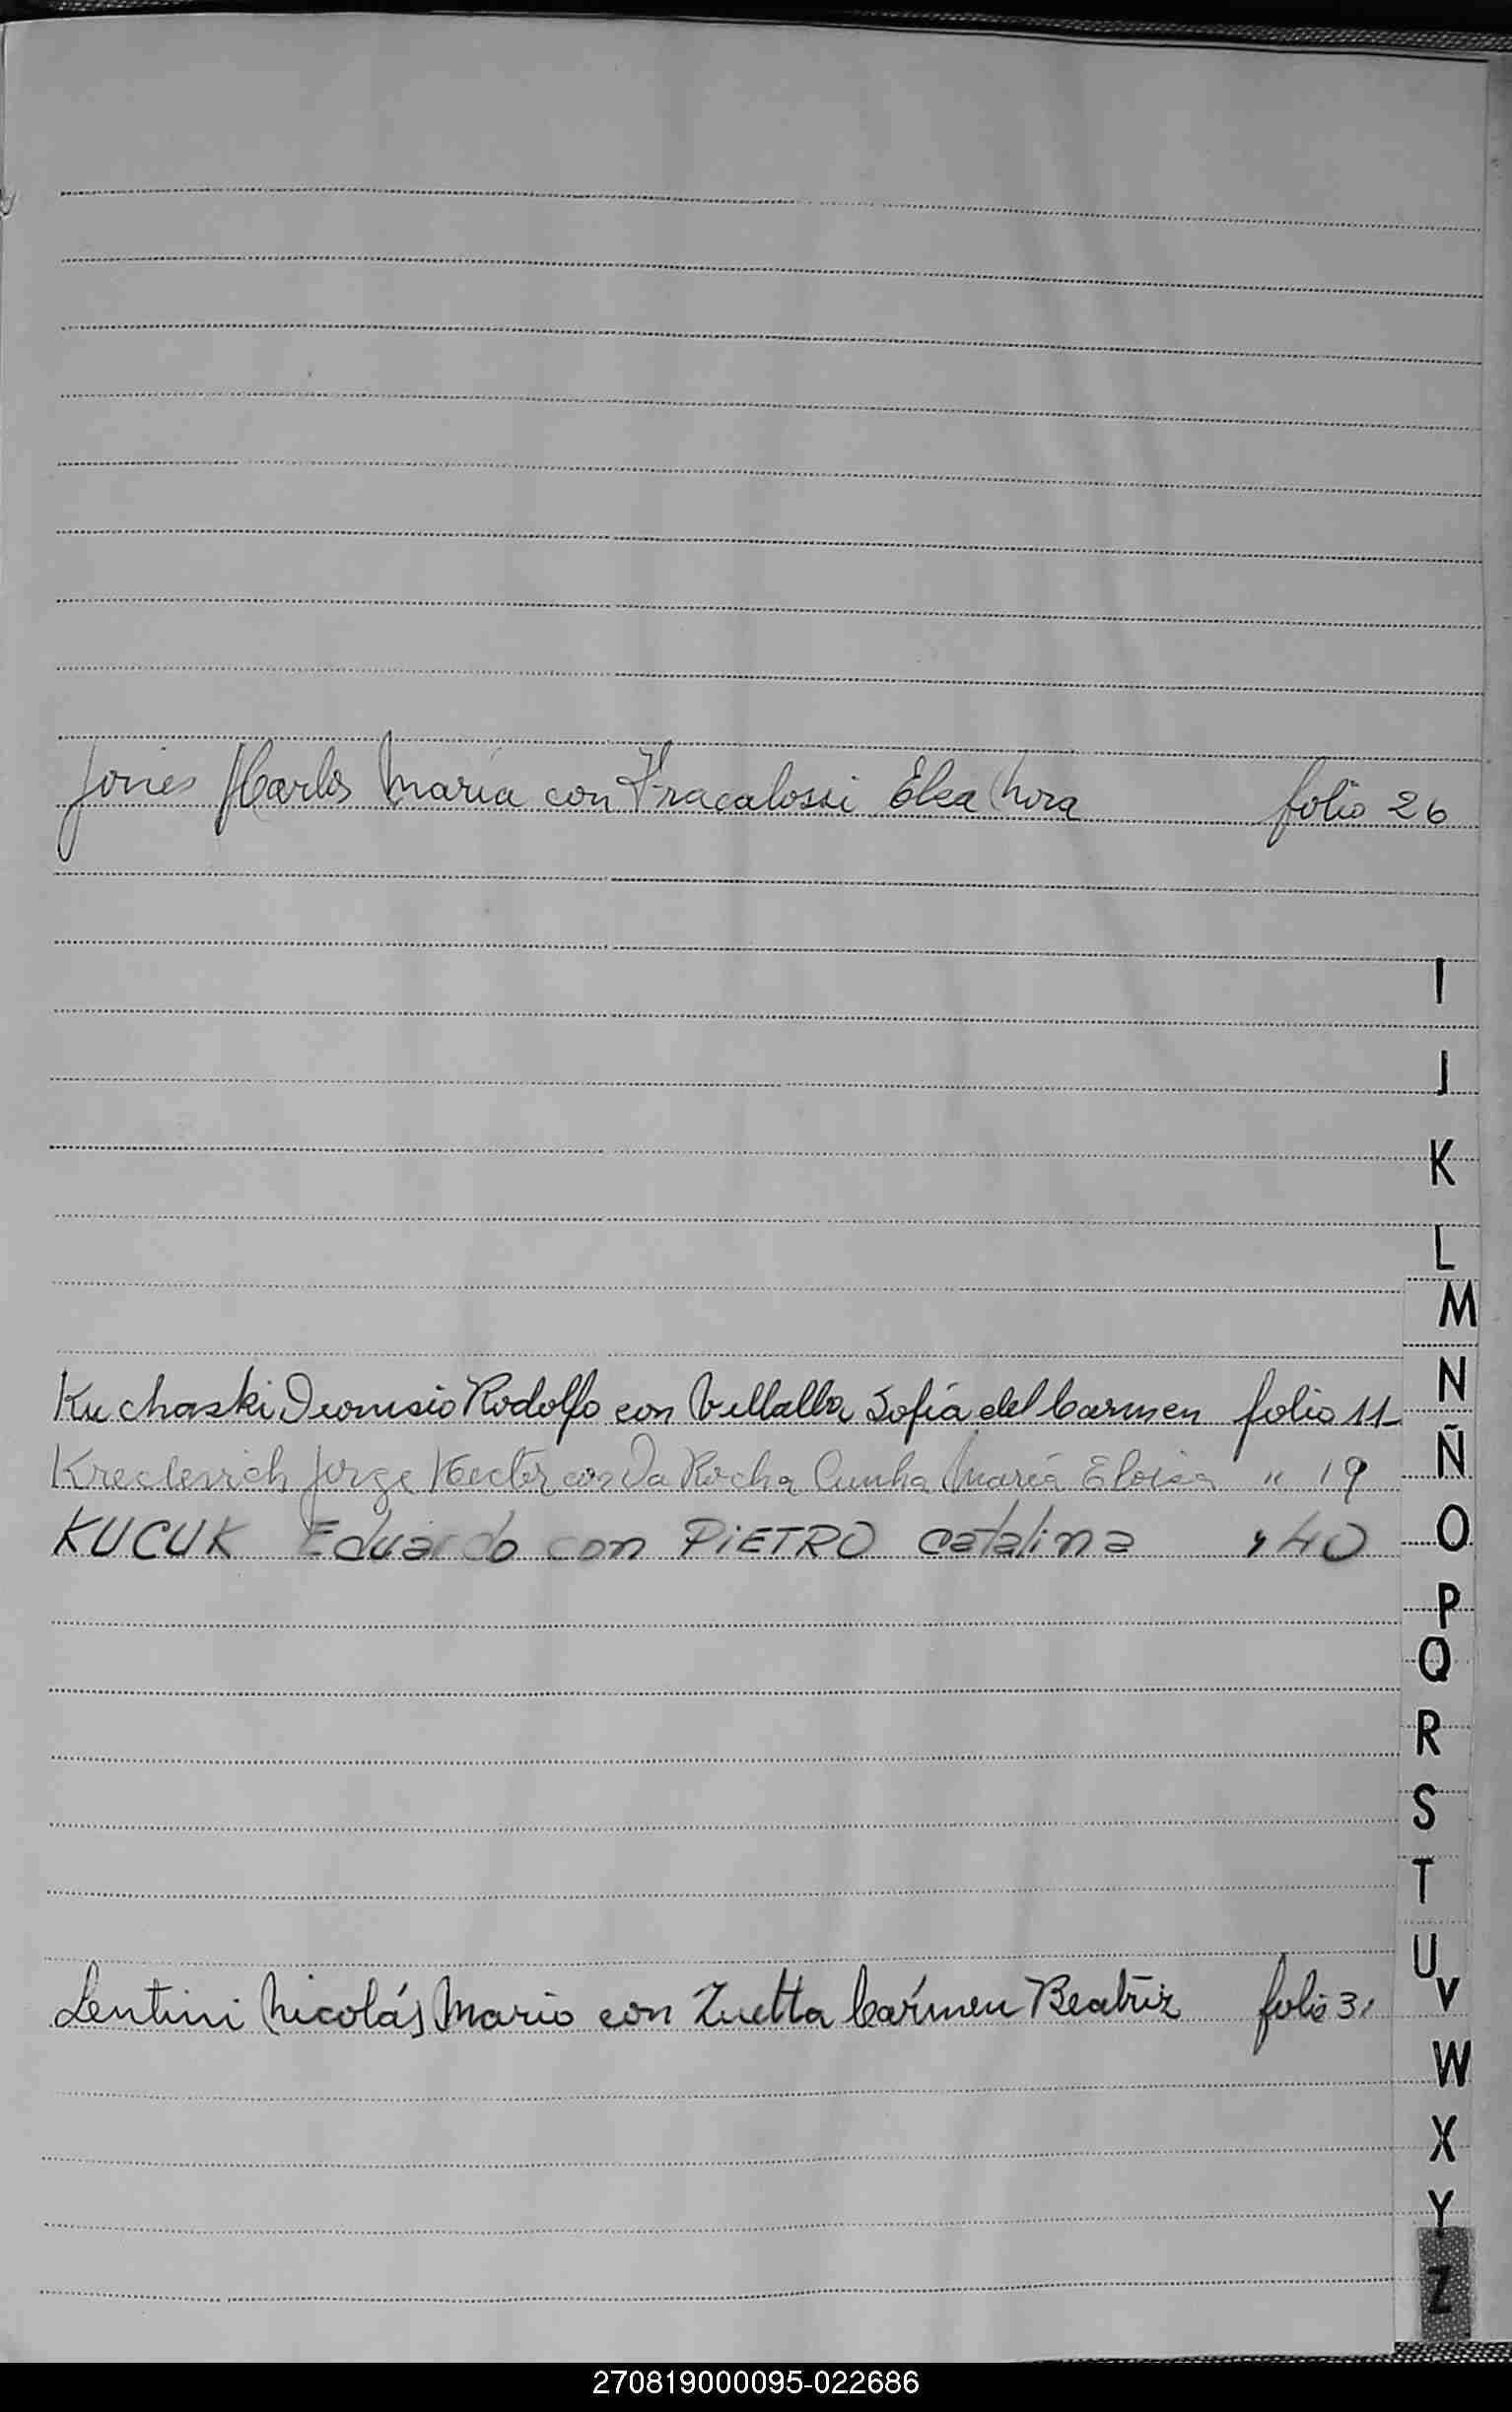 Jones Carlos María con Fracalossi Elsa Nora folio 26
I
J
K
L
M
Kuchaski Dionisio Rodolfo con Villalba Sofía del Carmen folio 11
N
Ñ
Jorge Hector con Da Rocha Cunha María Eloisa " 19
KUCUK Eduardo con PiETRO catalina " 40
O
P
Q
R
S
T
U
V
Lentini Nicolás Mario con Zuetta Cármen Beatriz folio 31
W
X
Y
Z
270819000095-022686